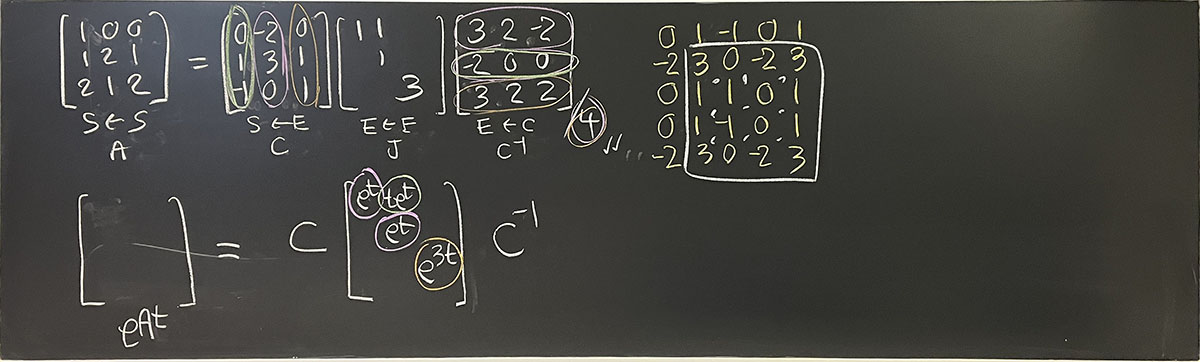 [1 0 0 / 1 2 1 / 2 1 2] = [0 -2 0 / 1 3 1 / -1 0 1] [1 1 / 1 / 3] [3 2 -2 / -2 0 0 / 3 2 2] /4
S←S S←E E←E E←S
A C J C⁻¹
0 1 -1 0 1
-2 3 0 -2 3
0 1 -1 0 1
0 1 -1 0 1
-2 3 0 -2 3
[ ] = C [e^t te^t / e^t / e^3t] C⁻¹
e^At